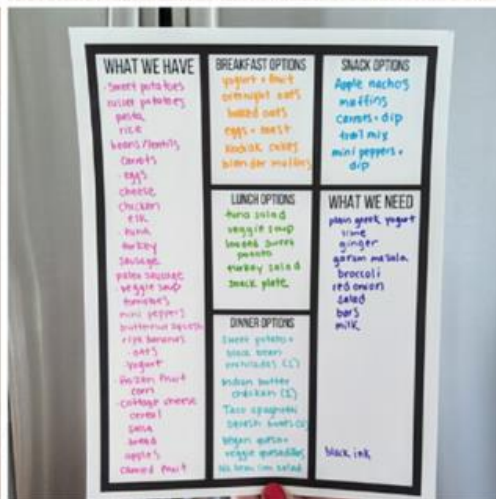 WHAT WE HAVE
sweet potatoes
russet potatoes
pasta
rice
beans/lentils
carrots
eggs
cheese
chicken
elk
tuna
turkey
sausage
paleo sausage
veggie soup
tomatoes
mini peppers
butternut squash
ripe bananas
oats
yogurt
frozen fruit
corn
cottage cheese
cereal
salsa
bread
apples
canned fruit
BREAKFAST OPTIONS
yogurt + fruit
overnight oats
baked oats
eggs + toast
kodiak cakes
blender muffins
LUNCH OPTIONS
tuna salad
veggie soup
loaded sweet
potato
turkey salad
snack plate
DINNER OPTIONS
sweet potato +
black bean
enchiladas (2)
Indian butter
chicken (2)
Taco spaghetti
squash boats (2)
vegan queso +
veggie quesadillas
salad
SNACK OPTIONS
Apple nachos
muffins
carrots + dip
trail mix
mini peppers +
dip
WHAT WE NEED
plain greek yogurt
lime
ginger
garam masala
broccoli
red onion
salad
bars
milk
black ink